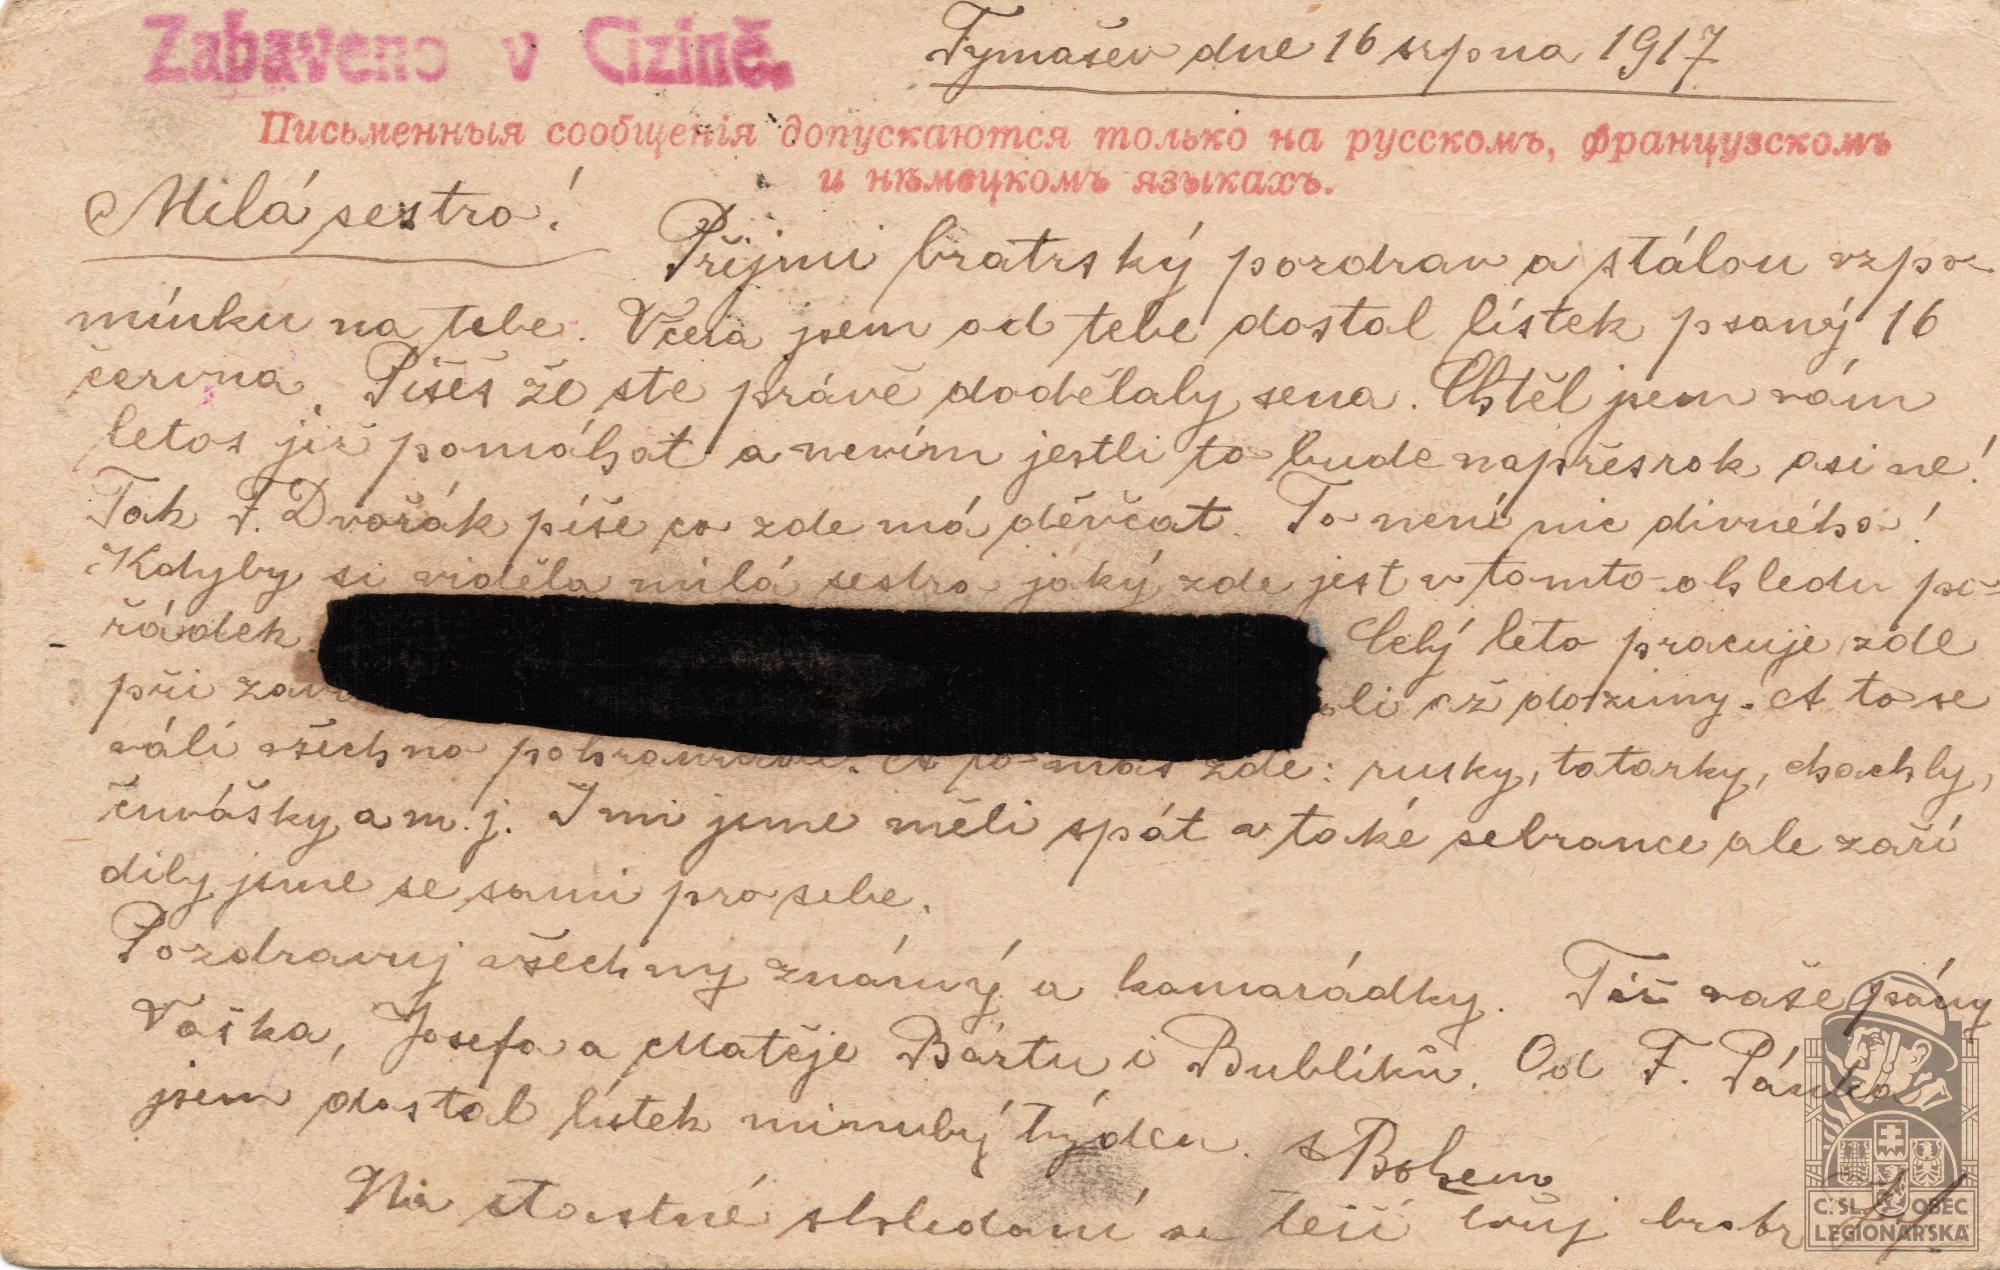 Zabaveno v Cizině.
Tymašev dne 16 srpna 1917
Письменныя сообщенія допускаются только на русскомъ, французскомъ
и нѣмецкомъ языкахъ.
Milá sestro!
Přijmi bratrský pozdrav a stálou vzpo-
mínku na tebe. Včera jsem od tebe dostal lístek psaný 16
června. Píšeš že ste právě dodělaly sena. Chtěl jsem vám
letos již pomáhat a nevím jestli to bude napřesrok asi ne!
Tak F. Dvořák píše co zde má děvčat. To není nic divného!
Kdyby si viděla milá sestro jaký zde jest v tomto ohledu po-
řádek Celý leto pracuje zde
při až do zimy. A to se
válí všechno pohromadě. A po-más zde: rusky, tatarky, chachly,
čuvášky a m. j. I mi jsme měli spát v také sebrance ale zaří
dily jsme se sami pro sebe.
Pozdravuj všechny známý a kamarádky. Též vaše pány
Vaška, Josefa a Matěje Bártu i Bublíků. Od F. Pánka
jsem dostal lístek minulý týden. S Bohem
Na šťastné shledaní se těší tvůj bratr
Č. SL. OBEC
LEGIONÁŘSKÁ